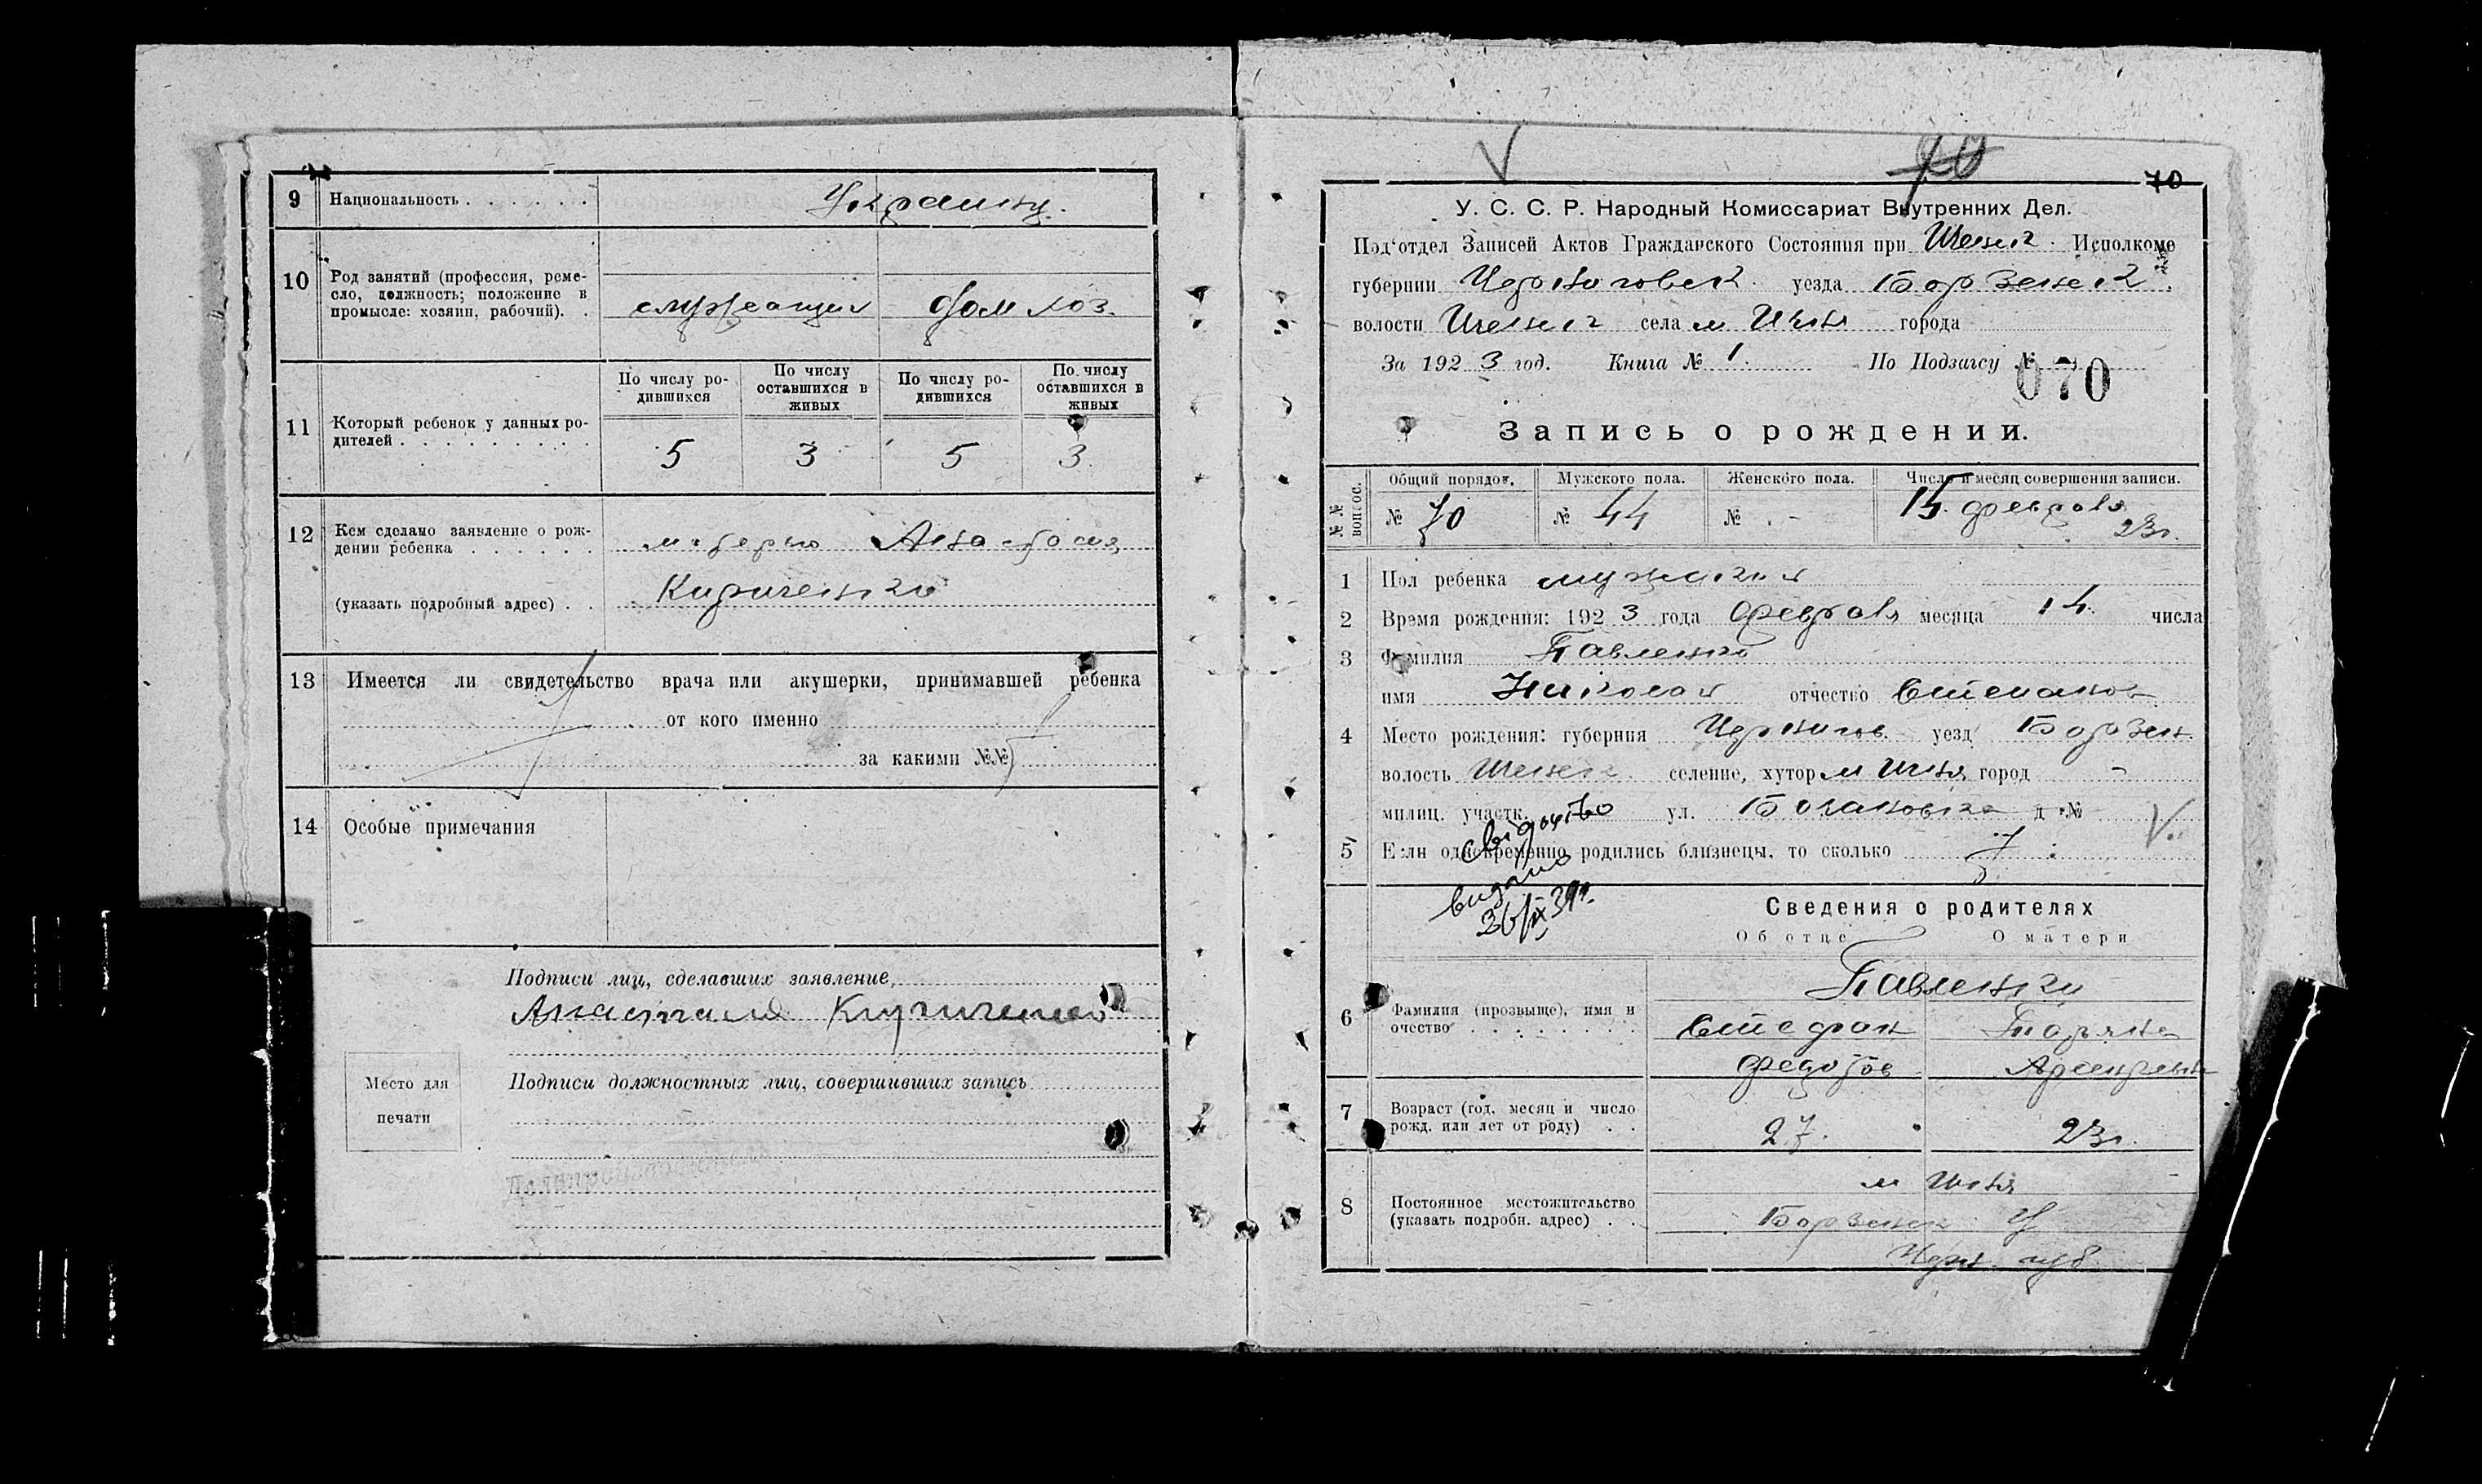 9 Национальность . . . . . . Украинц.
10 Род занятий (профессия, реме-
сло, должность; положение в
промысле: хозяин, рабочий). .
служащий дом хоз.
11 Который ребенок у данных ро-
дителей . . . . . . . . .
По числу ро-
дившихся
По числу
оставшихся в
живых
По числу ро-
дившихся
По числу
оставшихся в
живых
5 3 5 3
12 Кем сделано заявление о рож-
дении ребенка . . . . . .
Анастасия
(указать подробный адрес) . .
Кириченко
13 Имеется ли свидетельство врача или акушерки, принимавшей ребенка
от кого именно
за какими №№
14 Особые примечания
Подписи лиц, сделавших заявление,
Анастасия Кириченко
Место для
печати
Подписи должностных лиц, совершивших запись
70
70
У. С. С. Р. Народный Комиссариат Внутренних Дел.
Под'отдел Записей Актов Гражданского Состояния при Исполкоме
губернии Черниговск. уезда Борзенск.
волости села м Ичня города
За 1923 год. Книга № 1. По Подзагсу №
070
Запись о рождении.
№ №
вопрос.
Общий порядок. Мужского пола. Женского пола. Число и месяц совершения записи.
№ 70 № 44 № - 15 февраля
23г.
1 Пол ребенка мужской
2 Время рождения: 1923 года февраля месяца 14. числа
3 Фамилия Павленко
имя Николай отчество Степанов
4 Место рождения: губерния Чернигов. уезд Борзен.
волость селение, хутор м Ичня город -
милиц. участк. ул. д. №
5 Если одновременно родились близнецы, то сколько
свідоцтво
видано
Сведения о родителях
Об отце О матери
6 Фамилия (прозвыще), имя и
очество . . . . . . . .
Павленко
Стефан
Федотов
7 Возраст (год, месяц и число
рожд. или лет от роду) . .
27. 23г.
8 Постоянное местожительство
(указать подробн. адрес) . .
м Ичня
Борзенск У
Черн. губ.